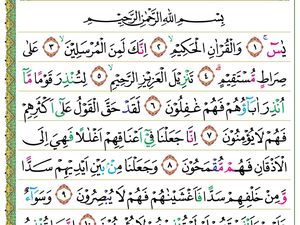 بِسْمِ اللهِ الرَّحْمٰنِ الرَّحِيْمِ
يٰسٓ ۚ ١ وَالْقُرْاٰنِ الْحَكِيْمِ ۙ ٢ اِنَّكَ لَمِنَ الْمُرْسَلِيْنَ ۙ ٣ عَلٰى
صِرَاطٍ مُّسْتَقِيْمٍ ۗ ٤ تَنْزِيْلَ الْعَزِيْزِ الرَّحِيْمِ ۙ ٥ لِتُنْذِرَ قَوْمًا مَّآ
اُنْذِرَ اٰبَآؤُهُمْ فَهُمْ غٰفِلُوْنَ ٦ لَقَدْ حَقَّ الْقَوْلُ عَلٰٓى اَكْثَرِهِمْ
فَهُمْ لَا يُؤْمِنُوْنَ ٧ اِنَّا جَعَلْنَا فِيْٓ اَعْنَاقِهِمْ اَغْلٰلًا فَهِيَ اِلَى
الْاَذْقَانِ فَهُمْ مُّقْمَحُوْنَ ٨ وَجَعَلْنَا مِنْۢ بَيْنِ اَيْدِيْهِمْ سَدًّا
وَّمِنْ خَلْفِهِمْ سَدًّا فَاَغْشَيْنٰهُمْ فَهُمْ لَا يُبْصِرُوْنَ ٩ وَسَوَآءٌ